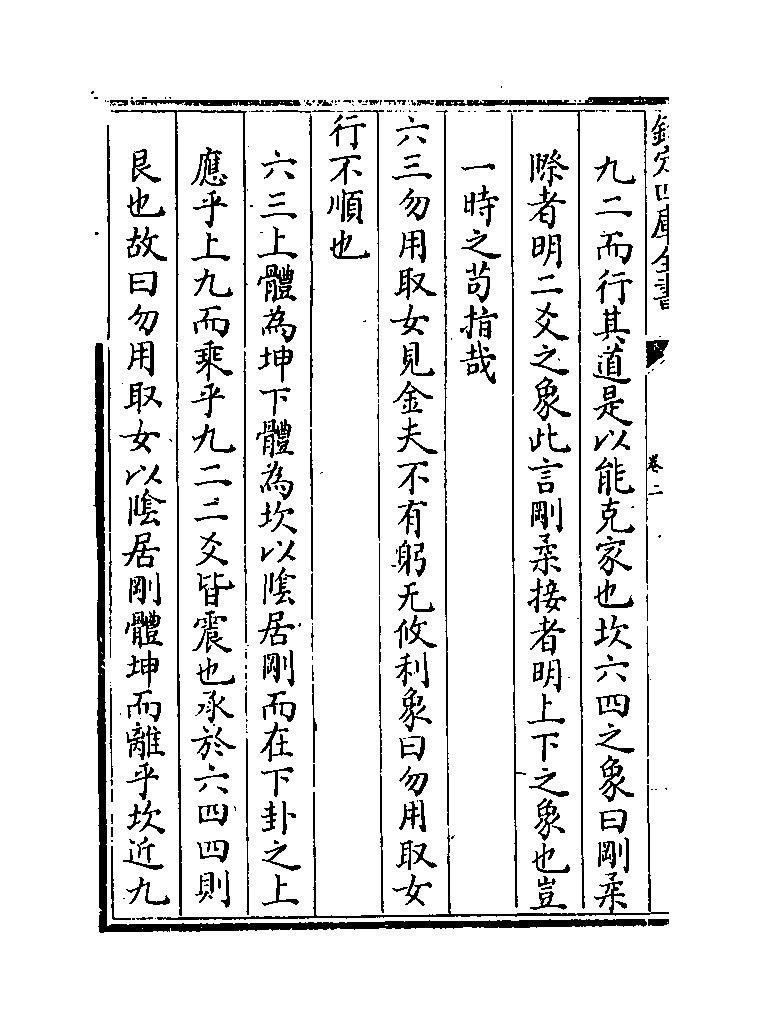 欽定四庫全書
卷二
九二而行其道是以能克家也坎六四之象曰剛柔
際者明二爻之象此言剛柔接者明上下之象也豈
一時之苟指哉
六三勿用取女見金夫不有躬无攸利象曰勿用取女
行不順也
六三上體為坤下體為坎以隂居剛而在下卦之上
應乎上九而乘乎九二二爻皆震也承於六四四則
艮也故曰勿用取女以隂居剛體坤而離乎坎近九